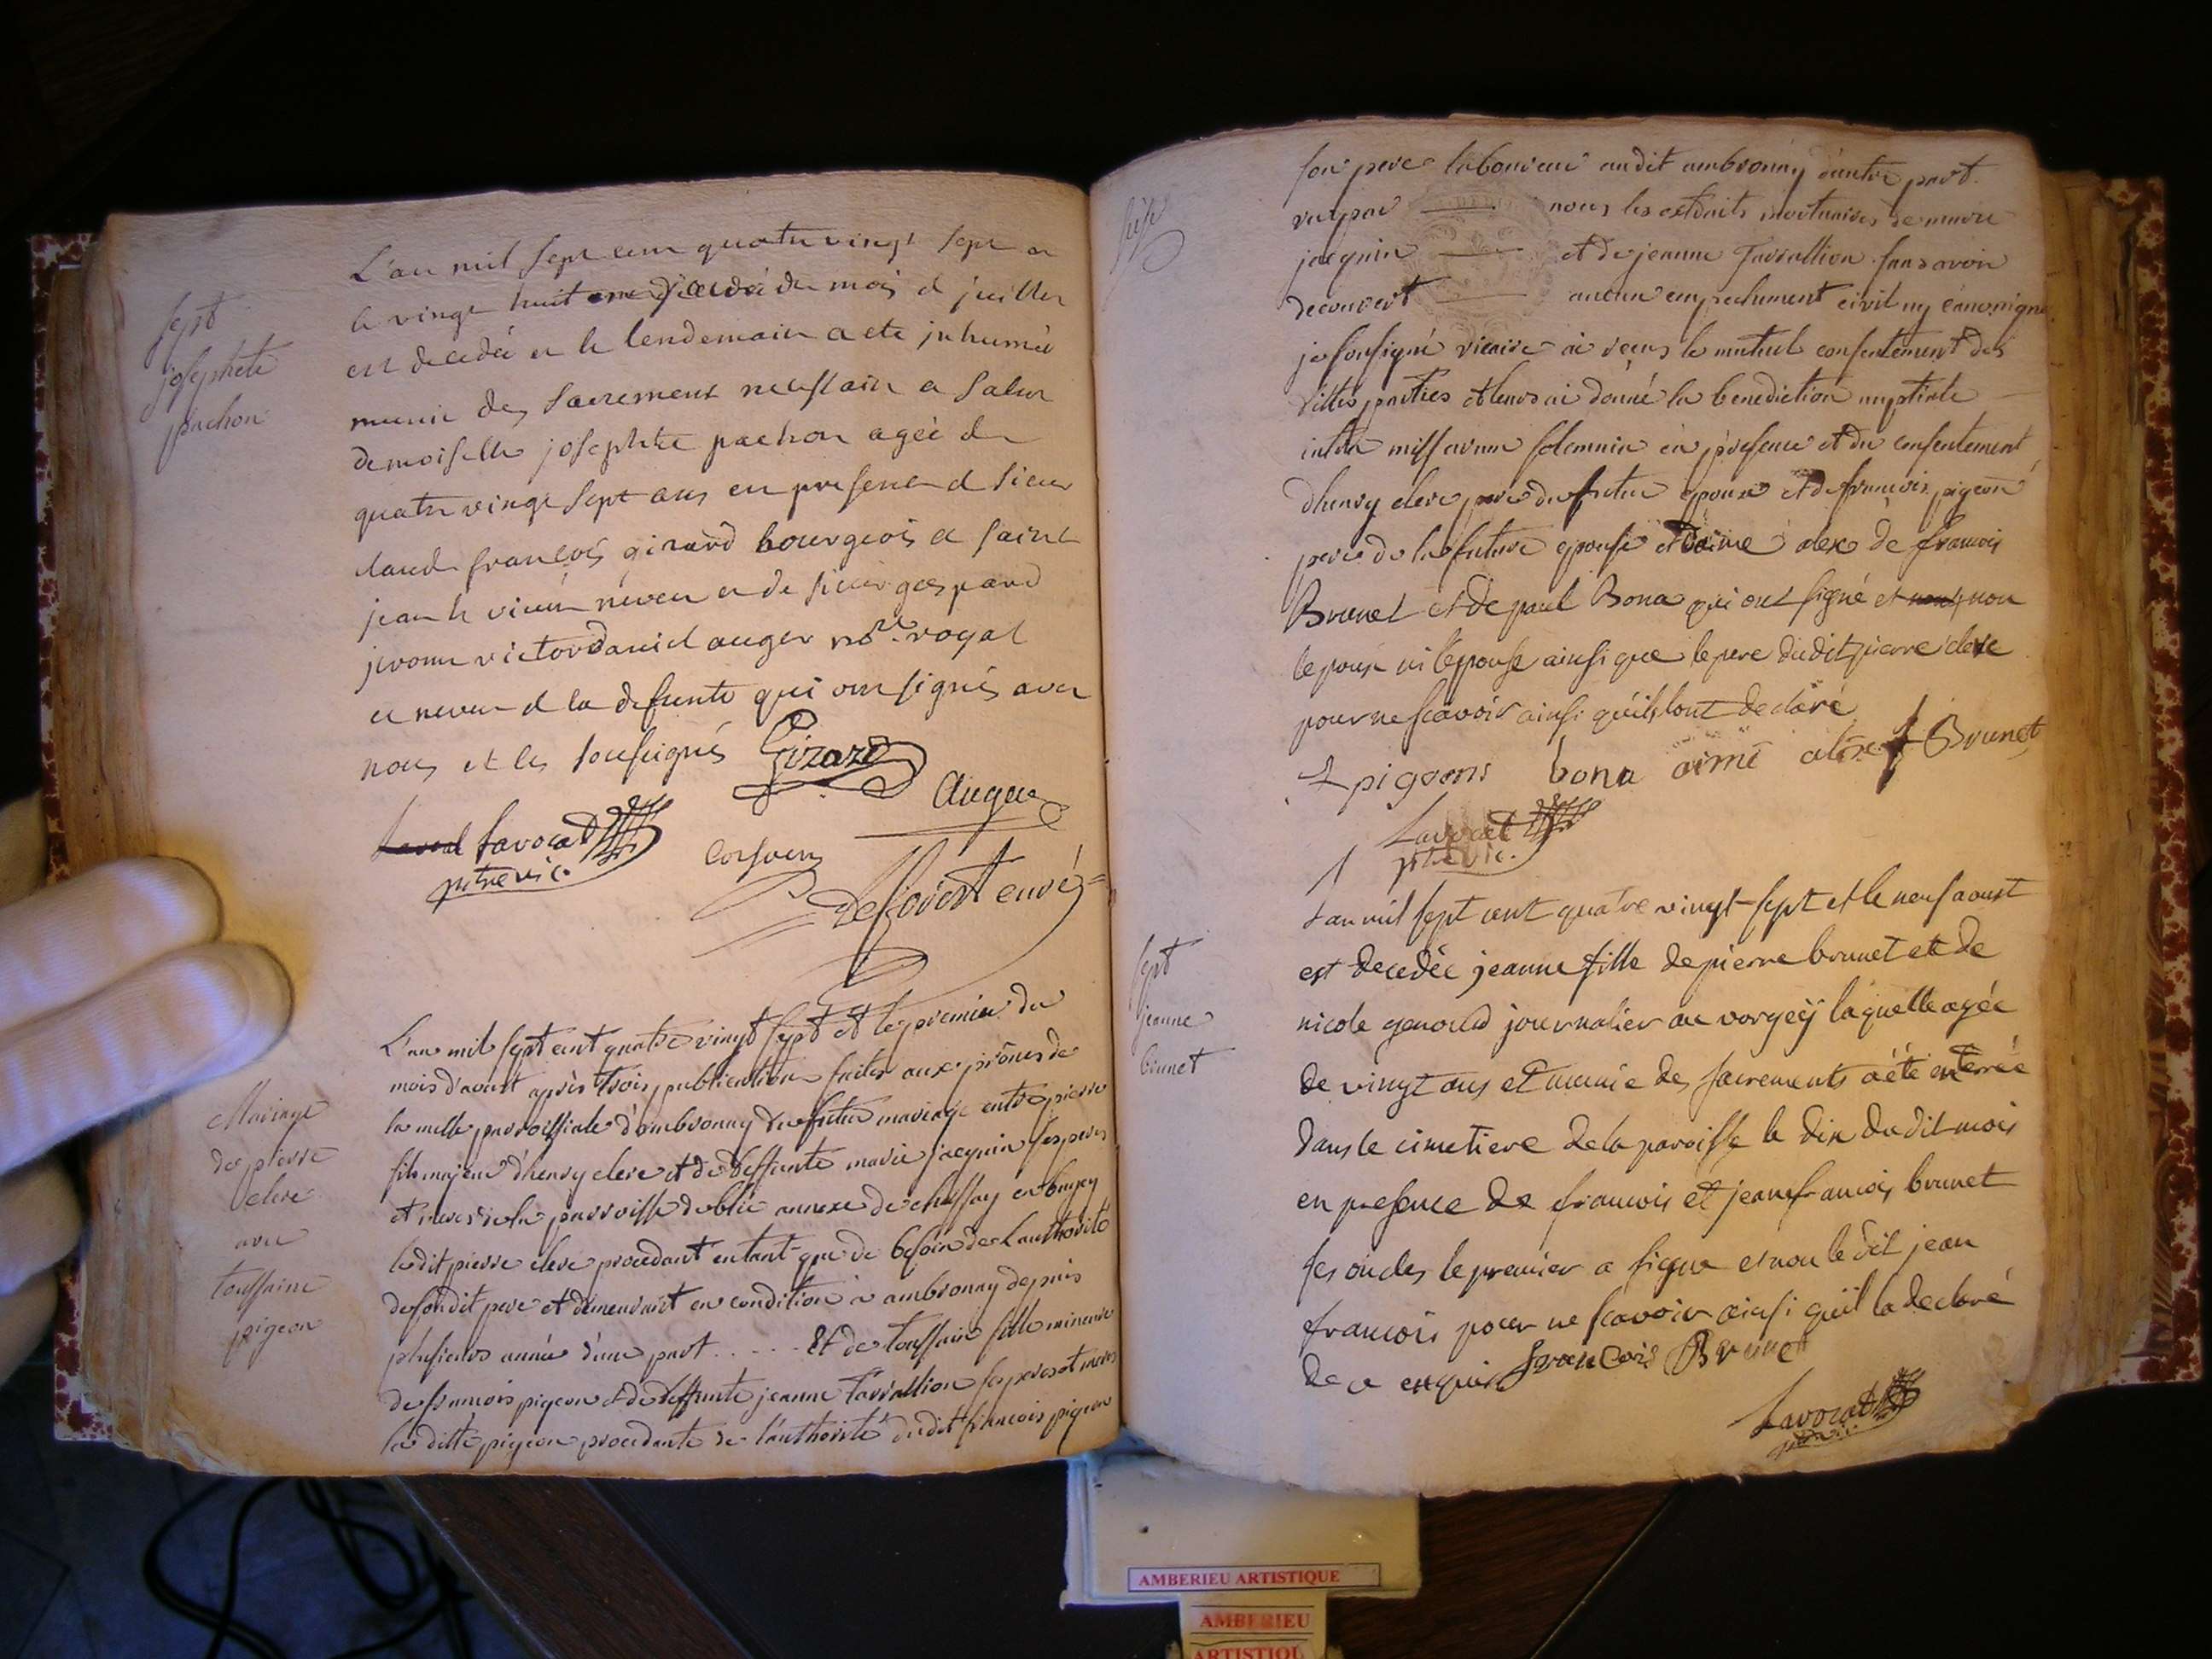 sept
josephete
pachon
L'an mil sept cent quatre vingt sept et
le vingt huit du mois d juillet
est decedée et le lendemain a ete inhumée
munie des sacrements necessair a salut
demoiselle josephte pachon agée de
quatre vingt sept ans en presence d sieur
claude françois girard bourgeois de saint
jean le vieux neveu et de sieur gaspard
jerome victor daniel auger nore royal
et neveu d la defunte qui ont signés avec
nous et les sousignés Girard
Auger
Lavocat
ptre vic.
Mariage
de pierre
clerc
avec
toussaine
pigeon
L'an mil sept cent quatre vingt sept et le premier du
mois d'aoust après trois publications faites aux prônes de
la messe parroissiale d'ambronay du futur mariage entre pierre
fils majeur d'henry clerc et de deffunte marie jacquin ses peres
et meres de la parroisse doblie annexe de chassey en bugey
ledit pierre clerc procedant entant que de besoin de l'authorité
de son dit pere et demeurant en condition à ambronay depuis
plusieurs année d'une part . . . . . Et de toussaine fille mineure
de francois pigeon et de deffunte jeanne Tavallion ses peres et meres
la ditte pigeon procedante de l'authorité dudit francois pigeon
son pere laboureur audit ambronay d'autre part.
vu par nous les extraits mortuaires de marie
jacquin et de jeanne Tavallion sans avoir
decouvert aucun empechement civil ny canonique
je sousigné vicaire ai reçus le mutuel consentement des
dittes parties et leurs ai donné la benediction nuptiale
intra missarum solemnia en presence et du consentement
dhenry clerc pere du futur epoux et de francois pigeon
pere de la future epouse et daimé alex de francois
Brunet et de paul Bona qui ont signé et non
lepoux ni lepouse ainsi que le pere dudit pierre clerc
pour ne scavoir ainsi quils lont declaré
f pigeons bona aimé alex f Brunet
Lavocat
ptre vic.
sept
jeanne
brunet
L'an mil sept cent quatre vingt-sept et le neuf aoust
est decedée jeanne fille de pierre brunet et de
nicole genoud journalier au vorgey laquelle agée
de vingt ans et munie des sacrements a été enterrée
dans le cimetiere de la paroisse le dix dudit mois
en presence de francois et jean francois brunet
ses oncles le premier a signe et non le dit jean
francois pour ne scavoir ainsi quil la declaré
de ce enquis francois Brunet
Lavocat
AMBERIEU ARTISTIQUE
AMBERIEU
ARTISTIQU